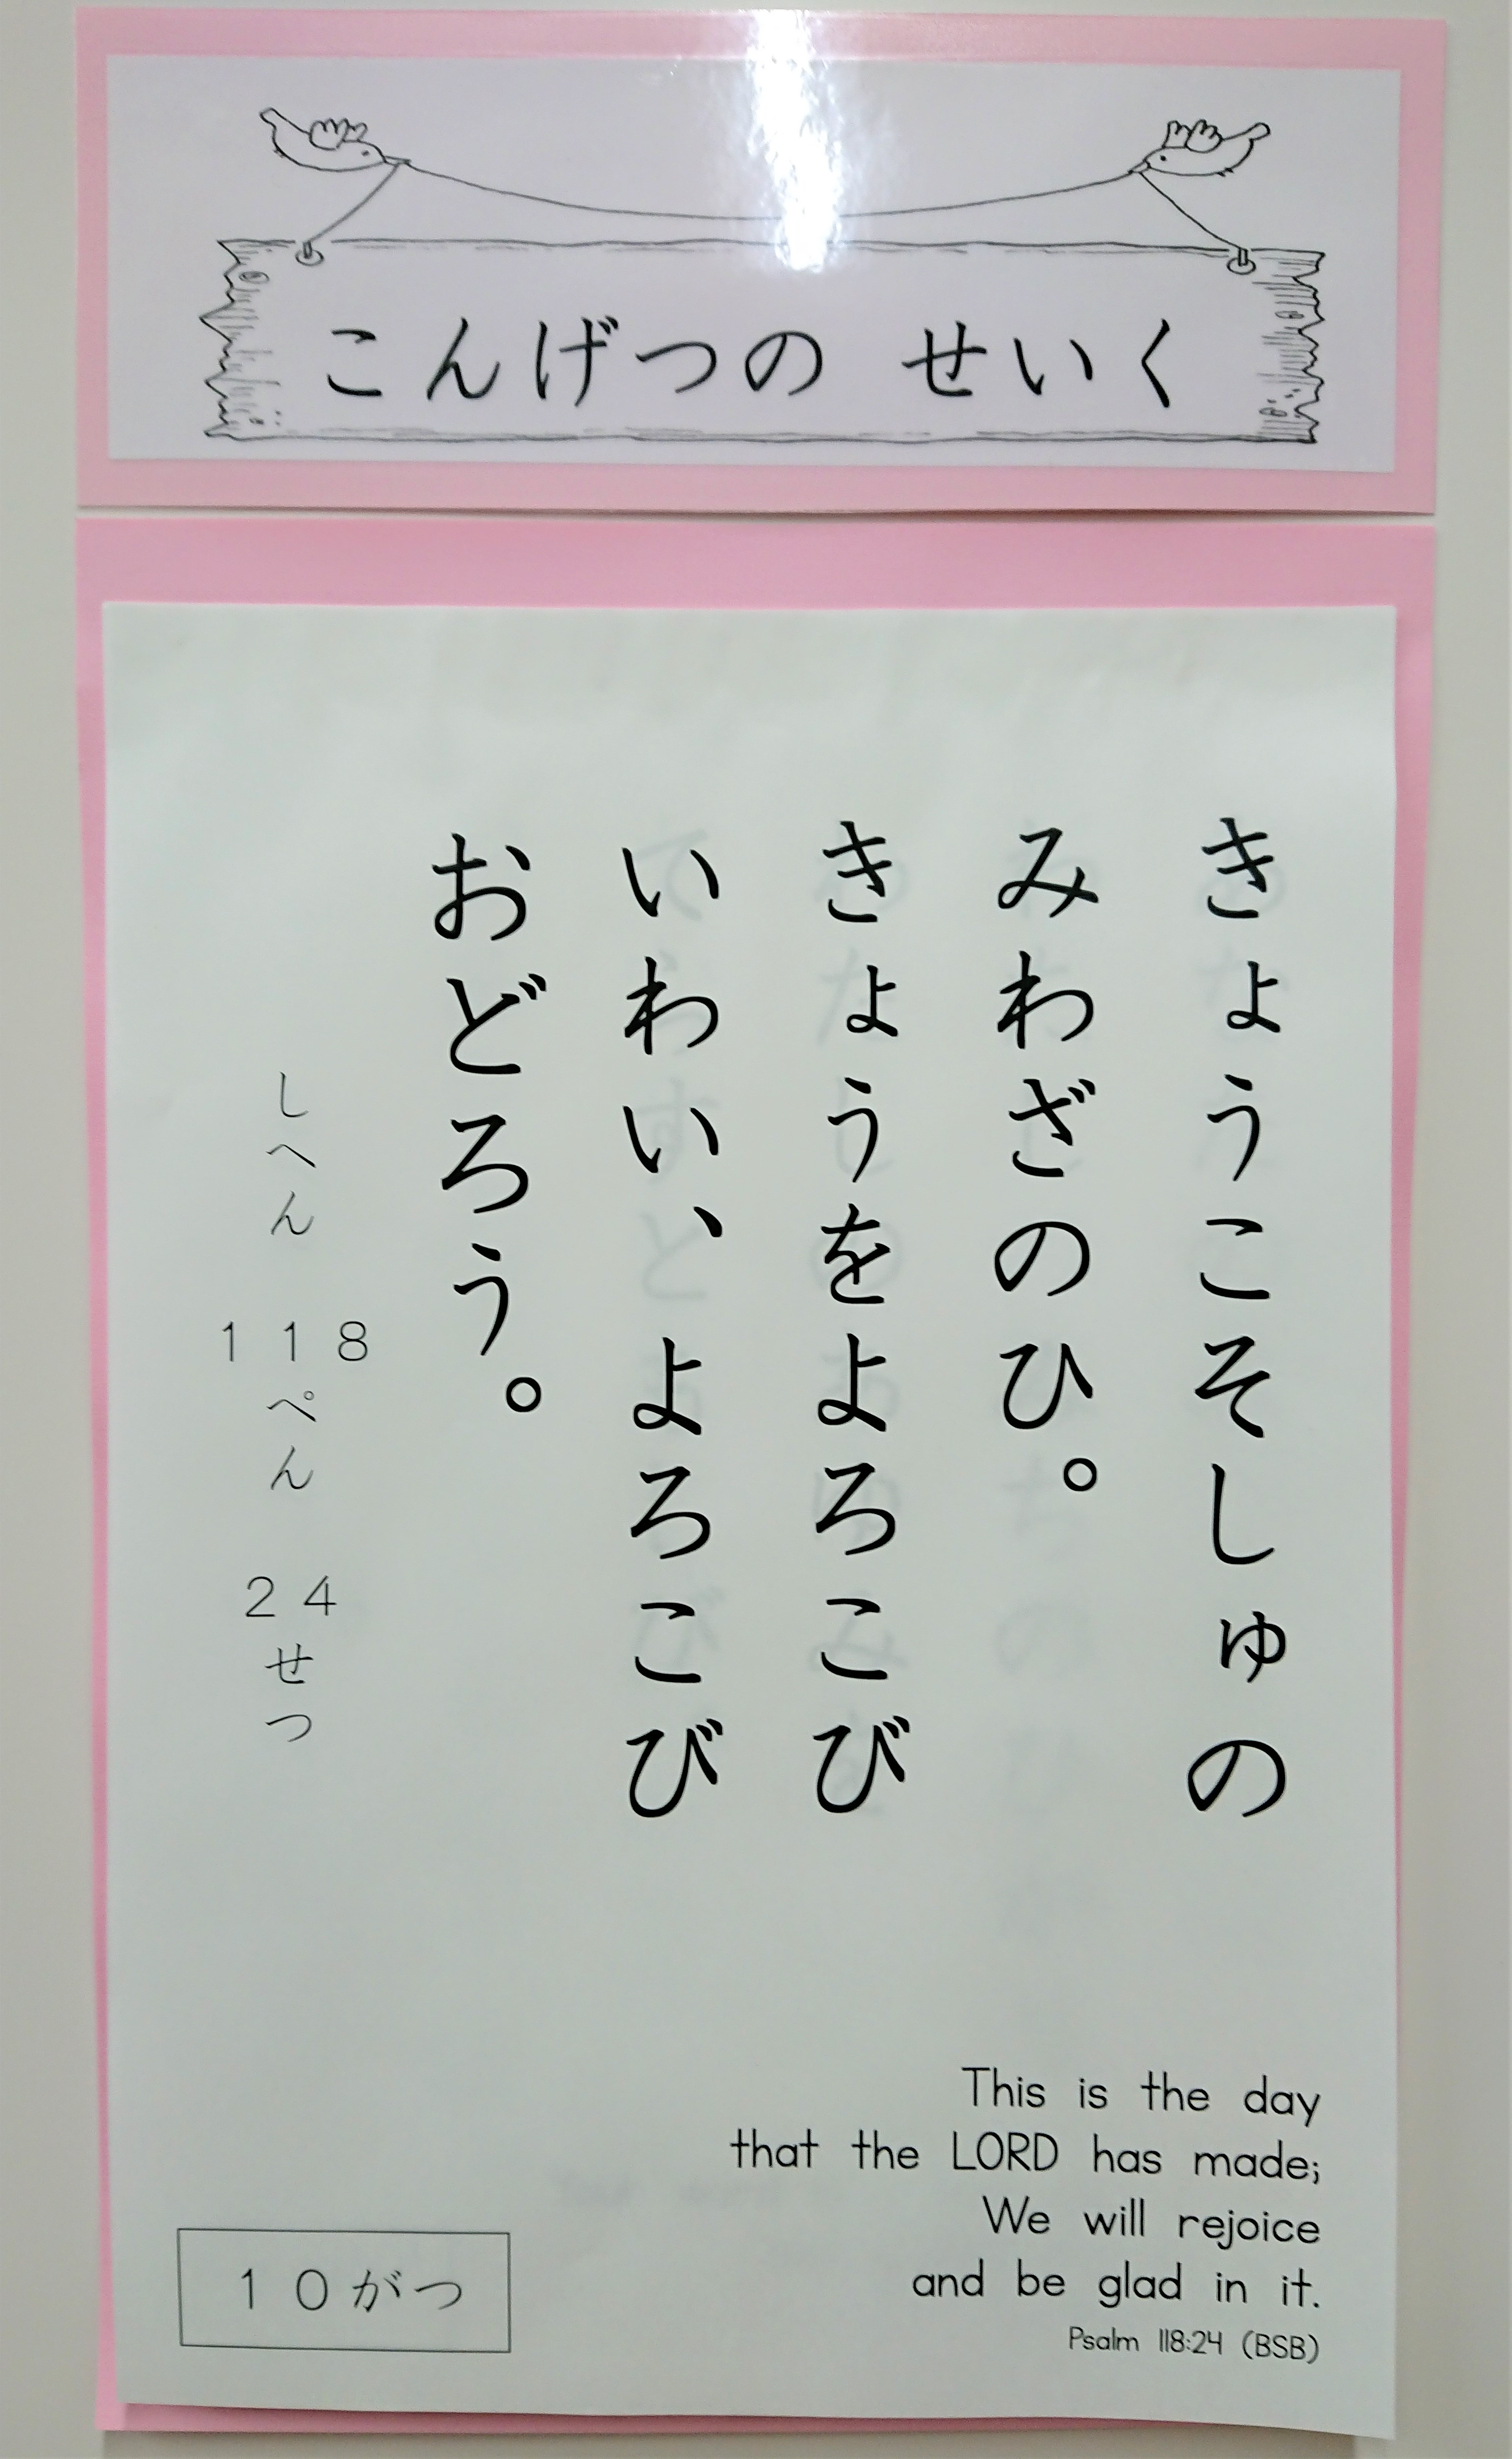 こんげつの せいく
きょうこそしゅの
みわざのひ。
きょうをよろこび
いわい、よろこび
おどろう。
しへん 118ぺん 24せつ
This is the day
that the LORD has made;
We will rejoice
and be glad in it.
Psalm 118:24 (BSB)
10がつ